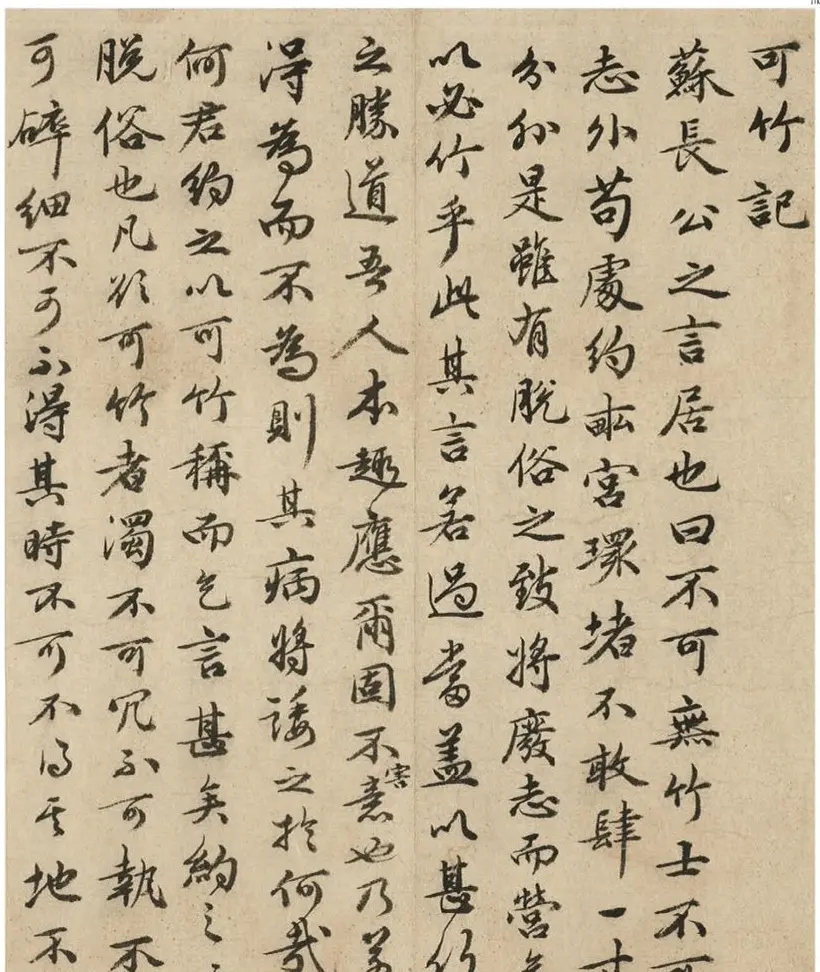 可竹記
蘇長公之言居也曰不可無竹士不可
志外苟處約畝宮環堵不敢肆一寸
分外是雖有脫俗之致將廢志而營
以必竹乎此其言若過當蓋以甚竹
之勝道吾人本趣應爾固不害意也乃若
得為而不為則其病將諉之於何哉
何君約之以可竹稱而乞言甚矣約之
脫俗也凡欲可竹者濁不可冗不可執不
可碎細不可不得其時不可不得其地不